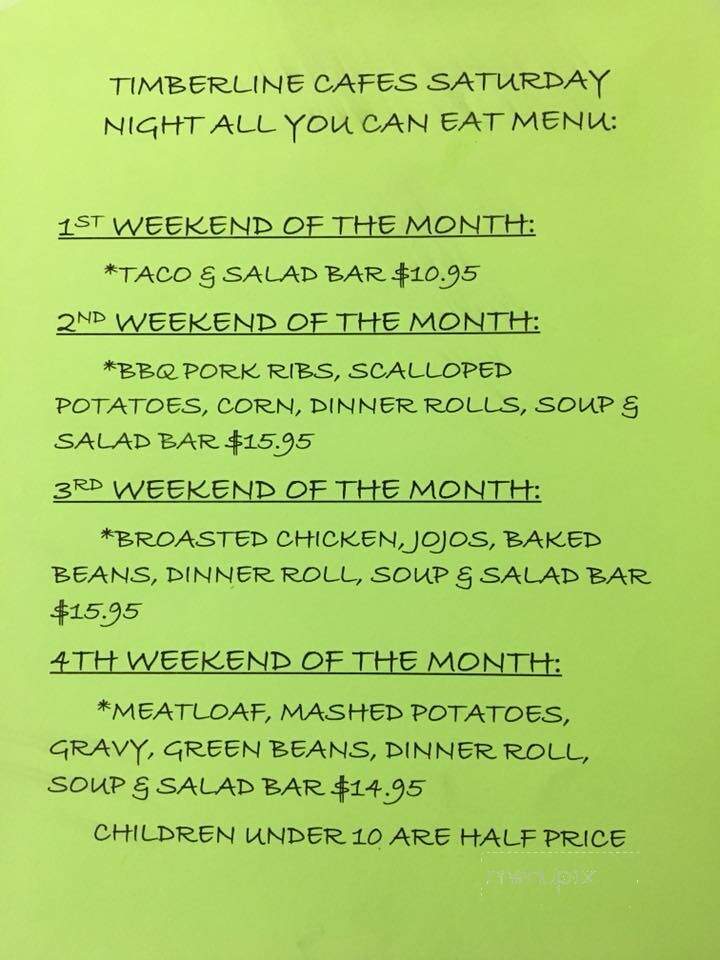 TIMBERLINE CAFES SATURDAY
NIGHT ALL YOU CAN EAT MENU:
1ST WEEKEND OF THE MONTH:
*TACO & SALAD BAR $10.95
2ND WEEKEND OF THE MONTH:
*BBQ PORK RIBS, SCALLOPED
POTATOES, CORN, DINNER ROLLS, SOUP &
SALAD BAR $15.95
3RD WEEKEND OF THE MONTH:
*BROASTED CHICKEN, JOJOS, BAKED
BEANS, DINNER ROLL, SOUP & SALAD BAR
$15.95
4TH WEEKEND OF THE MONTH:
*MEATLOAF, MASHED POTATOES,
GRAVY, GREEN BEANS, DINNER ROLL,
SOUP & SALAD BAR $14.95
CHILDREN UNDER 10 ARE HALF PRICE